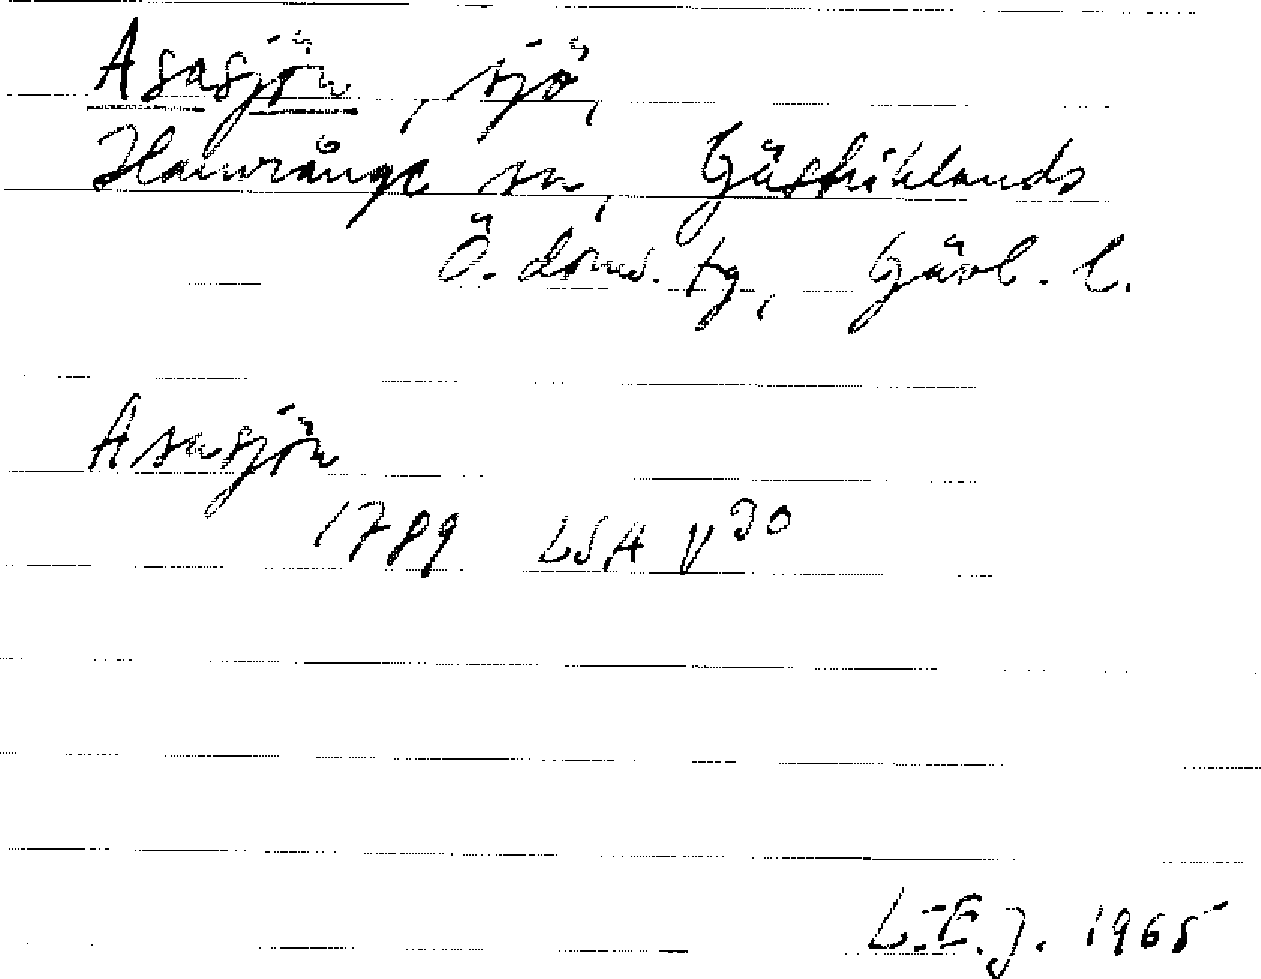 Asasjön, sjö,
Hamrånge sn, Gästriklands
Ö. doms. tg, Gävl. l.
Asasjön
1789 LSA V 30
L.-E.J. 1965